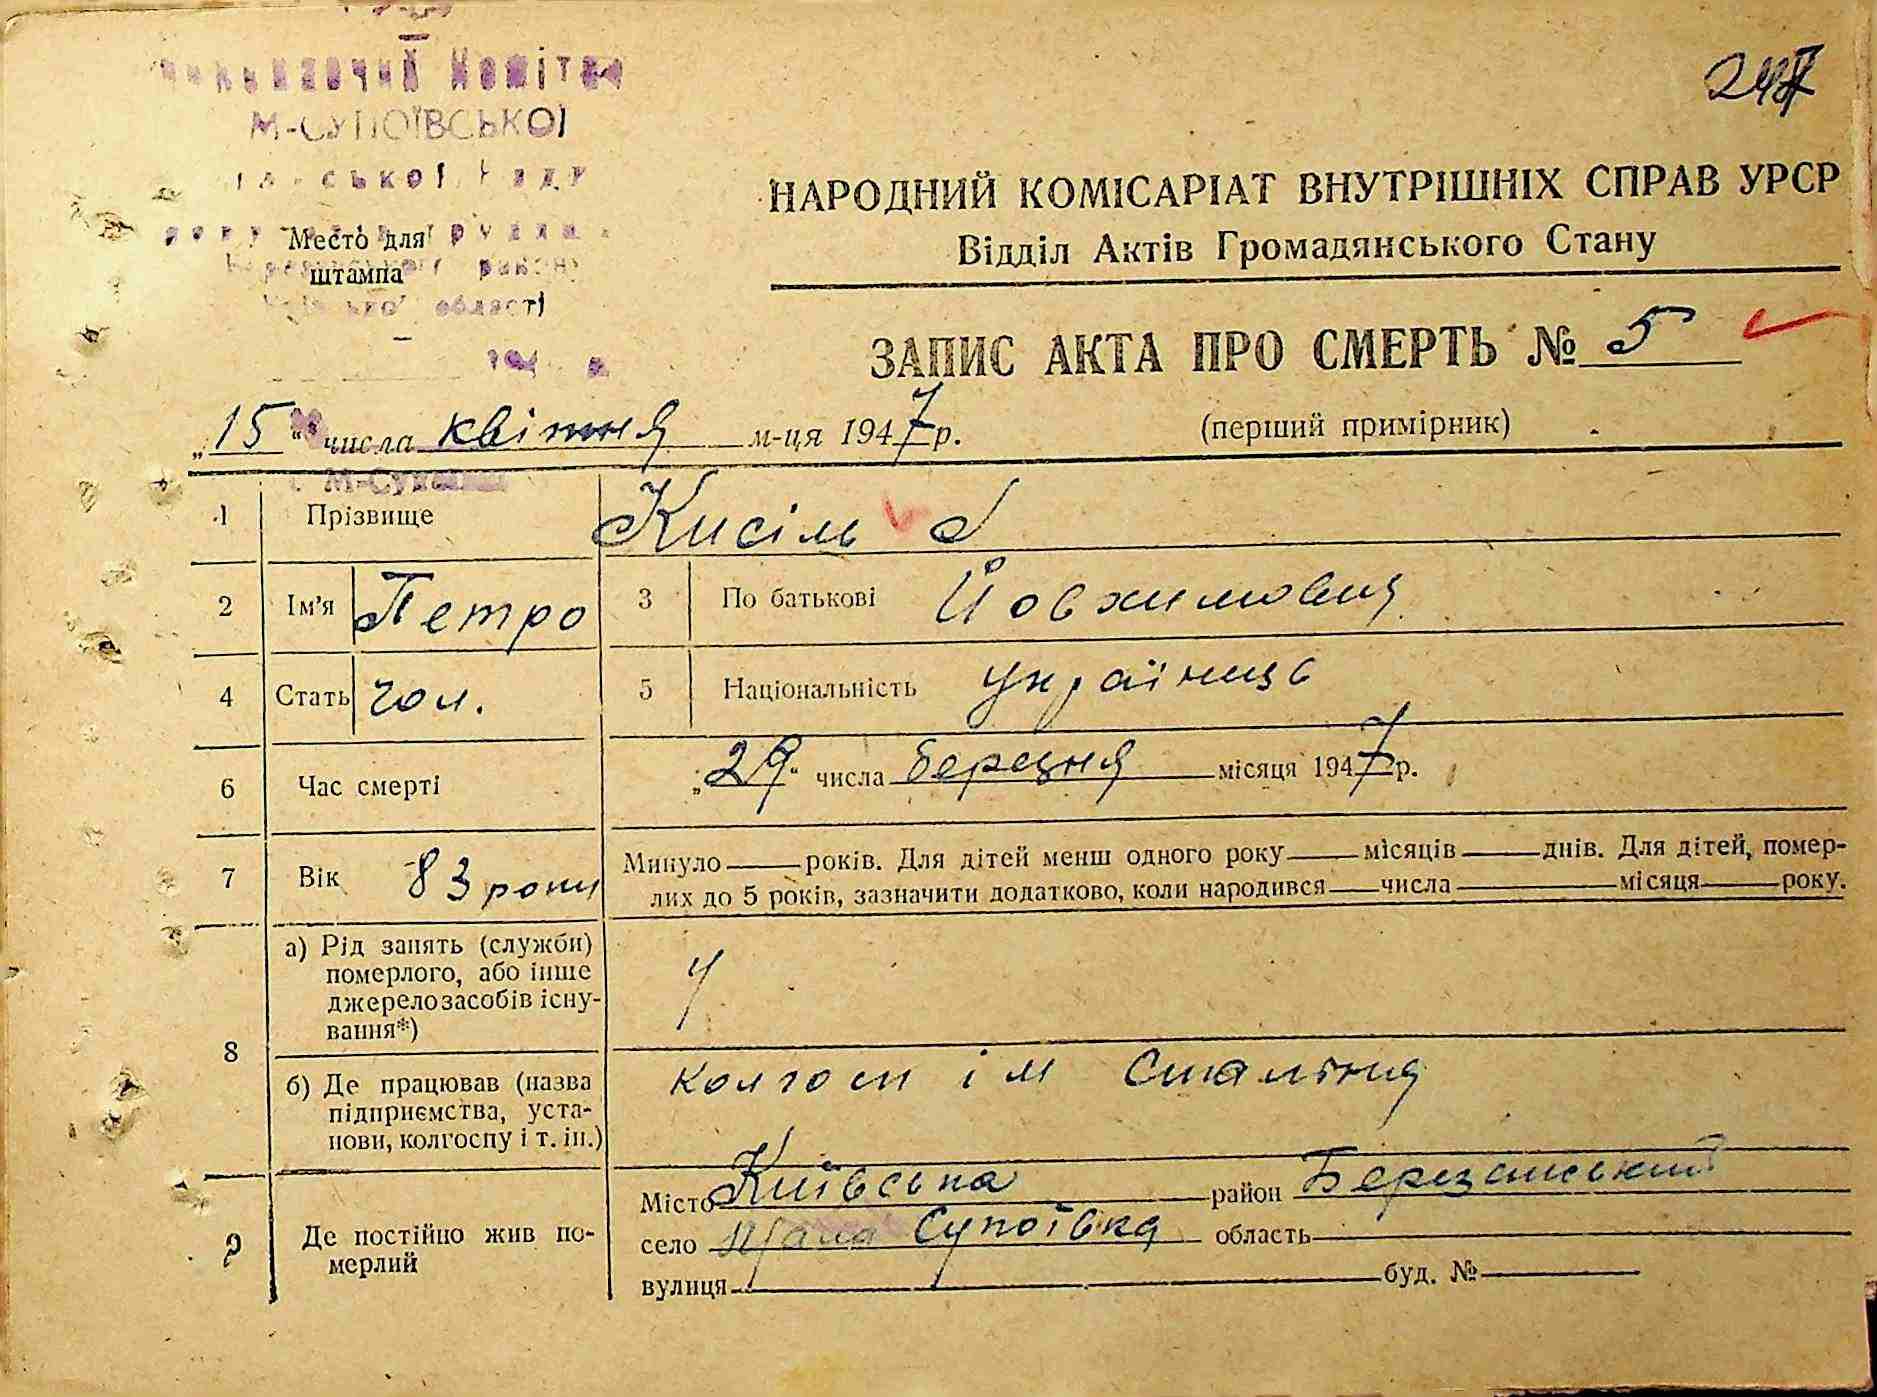 М-СУПОЇВСЬКОЇ
області
Место для
штампа
НАРОДНИЙ КОМІСАРІАТ ВНУТРІШНІХ СПРАВ УРСР
Відділ Актів Громадянського Стану
ЗАПИС АКТА ПРО СМЕРТЬ № 5
„15“ числа квітня м-ця 1947 р.
(перший примірник)
1 Прізвище Кисіль
2 Ім'я Петро 3 По батькові Йовхимович
4 Стать чол. 5 Національність українець
6 Час смерті „29“ числа березня місяця 1947 р.
7 Вік 83 роки Минуло років. Для дітей менш одного року місяців днів. Для дітей, помер-
лих до 5 років, зазначити додатково, коли народився числа місяця року.
8 а) Рід занять (служби)
померлого, або інше
джерело засобів існу-
вання*)
б) Де працював (назва
підприємства, уста-
нови, колгоспу і т. ін.)
колгосп ім Сталіна
9 Де постійно жив по-
мерлий
Місто Київська район Березанський
село Мала Супоївка область
вулиця буд. №